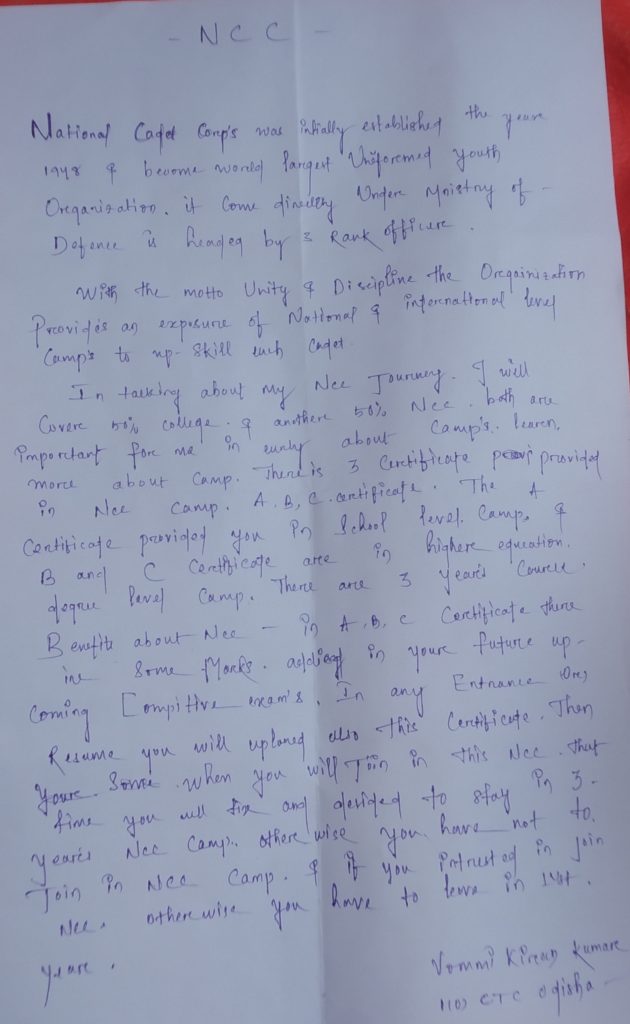 - NCC -
National Cadet Corp's was intially established the yeare
1948 & become world largest Uniforemed youth
Oreganisation. it come directly Under Ministry of -
Defence is headed by 3 Rank officere.
With the motto Unity & Discipline the Oregainization
Preovides an exposure of National & interenational level
Camp's to up-skill each Cadet.
In talking about my Ncc Journey. I will
Covere 50% college. & anothere 50% Ncc. both are
important fore me in early about Camp's. learen,
more about Camp. There is 3 Cerctificate provided
in Ncc Camp. A, B, C. certificate. The A
Certificate provided you in School level Camp, &
B and C Certificate are in highere education.
degree level Camp. There are 3 yeares Course.
Benefits about Ncc - in A, B, C Certificate there
ine Some Marks. adding in youre future up-
Coming Compitive exam's. In any Entrance (Or)
Resume you will uploaed also this Certificate. Then
Youre when you will Join in this Ncc. that
time you will fix and desided to stay in 3-
yeares Ncc Camp. othere wise you have not to
Join in Ncc Camp. & if you intrusted in join
Ncc. othere wise you have to leave in 1st.
yeare.
Vommi Kirean Kumare
1103 CTC Odisha -